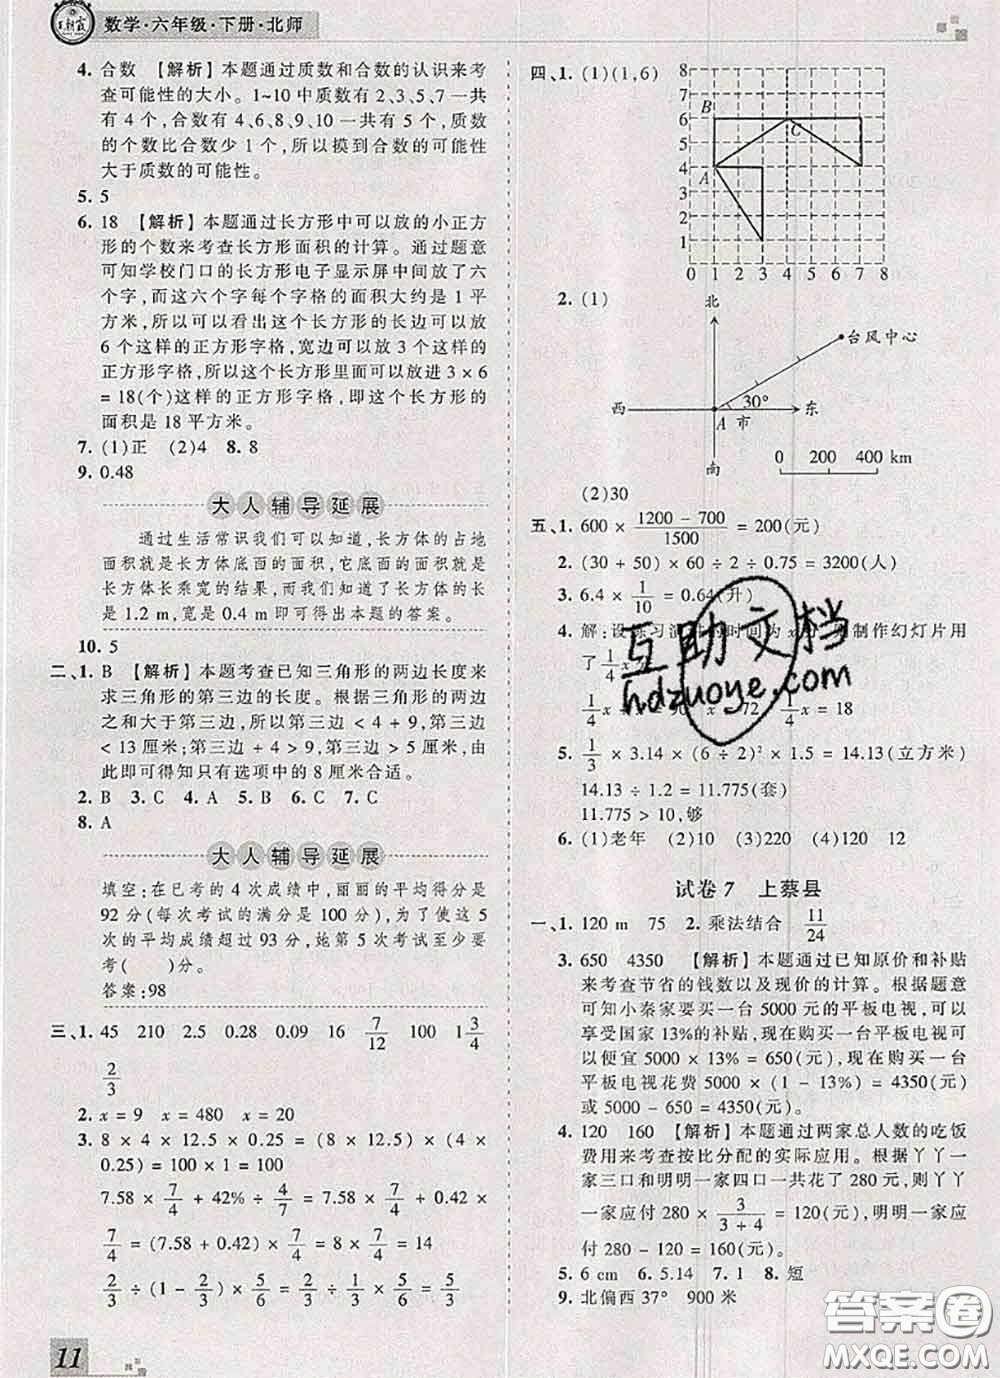 王朝霞 数学·六年级·下册·北师
4. 合数 【解析】本题通过质数和合数的认识来考
查可能性的大小。1~10 中质数有 2、3、5、7 一共
有 4 个,合数有 4、6、8、9、10 一共有 5 个,质数的
个数比合数少 1 个,所以摸到合数的可能性
大于质数的可能性。
5. 5
6. 18 【解析】本题通过长方形中可以放的小正方
形的个数来考查长方形面积的计算。通过题意
可知学校门口的长方形电子显示屏中间放了六
个字,而这六个字每个字格的面积大约是 1 平
方米,所以可以看出这个长方形的长边可以放
6 个这样的正方形字格,宽边可以放 3 个这样的
正方形字格,所以这个长方形里面可以放进 3 × 6
= 18(个)这样的正方形字格,即这个长方形的
面积是 18 平方米。
7. (1)正 (2)4 8. 8
9. 0.48
大人辅导延展
通过生活常识我们可以知道,长方体的占地
面积就是长方体底面的面积,它底面的面积就是
长方体长乘宽的结果,而我们知道了长方体的长
是 1.2 m,宽是 0.4 m 即可得出本题的答案。
10. 5
二、1. B 【解析】本题考查已知三角形的两边长度来
求三角形的第三边的长度。根据三角形的两边
之和大于第三边,所以第三边 < 4 + 9,第三边
< 13 厘米;第三边 + 4 > 9,第三边 > 5 厘米,由
此即可得知只有选项中的 8 厘米合适。
2. B 3. C 4. A 5. B 6. C 7. C
8. A
大人辅导延展
填空:在已考的 4 次成绩中,丽丽的平均得分是
92 分(每次考试的满分是 100 分),为了使这 5
次的平均成绩超过 93 分,她第 5 次至少要考
( )分。
答案:98
三、1. 45 210 2.5 0.28 0.09 16 7/12 100 1 3/4
2/3
2. x = 9 x = 480 x = 20
3. 8 × 4 × 12.5 × 0.25 = (8 × 12.5) × (4
× 0.25) = 100 × 1 = 100
7.58 × 7/4 + 42% ÷ 4/7 = 7.58 × 7/4 + 0.42 ×
7/4 = (7.58 + 0.42) × 7/4 = 8 × 7/4 = 14
2/3 ÷ (1 − 2/3) × 5/6 = 2/3 ÷ 1/3 × 5/6 = 2 × 5/6 = 5/3
11
四、1. (1)(1,6)
8
7
6
5
4
3
2
1
0 1 2 3 4 5 6 7 8
B
C
A
2. (1)
北
台风中心
西
30°
东
A 市
南
0 200 400 km
(2)30
五、1. 600 × (1200 − 700)/1500 = 200(元)
2. (30 + 50) × 60 ÷ 2 ÷ 0.75 = 3200(人)
3. 6.4 × 1/10 = 0.64(升)
4. 解:设练习演讲的时间为 x 制作幻灯片用
了 1/4 x
1/4 x + x = 90 x = 72 1/4 x = 18
5. 1/3 × 3.14 × (6 ÷ 2)² × 1.5 = 14.13(立方米)
14.13 ÷ 1.2 = 11.775(套)
11.775 > 10,够
6. (1)老年 (2)10 (3)220 (4)120 12
试卷 7 上蔡县
一、1. 120 m 75 2. 乘法结合 11/24
3. 650 4350 【解析】本题通过已知原价和补贴
来考查节省的钱数以及现价的计算。根据题意
可知小秦家要买一台 5000 元的平板电视,可以
享受国家 13%的补贴,现在购买一台平板电视
可以便宜 5000 × 13% = 650(元),现在购买一台
平板电视花费 5000 × (1 − 13%) = 4350(元)
或 5000 − 650 = 4350(元)。
4. 120 160 【解析】本题通过两家总人数的吃饭
费用来考查按比分配的实际应用。根据丫丫一
家三口和明明一家四口一共花了 280 元,则丫丫
一家应付 280 × 3/(3 + 4) = 120(元),明明一家应
付 280 − 120 = 160(元)。
5. 6 cm 6. 5.14 7. 1 8. 短
9. 北偏西 37° 900 米
互助文档
hdzuoye.com
答案圈
MXQE.COM